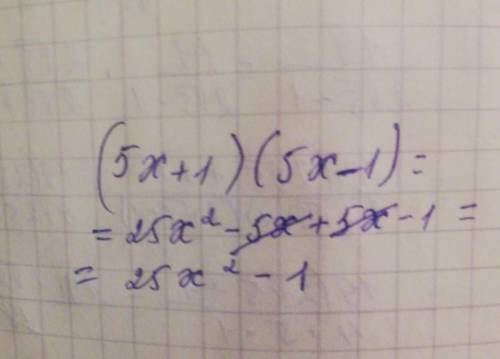 (5x+1)(5x-1)=
=25x²-5x+5x-1=
=25x²-1